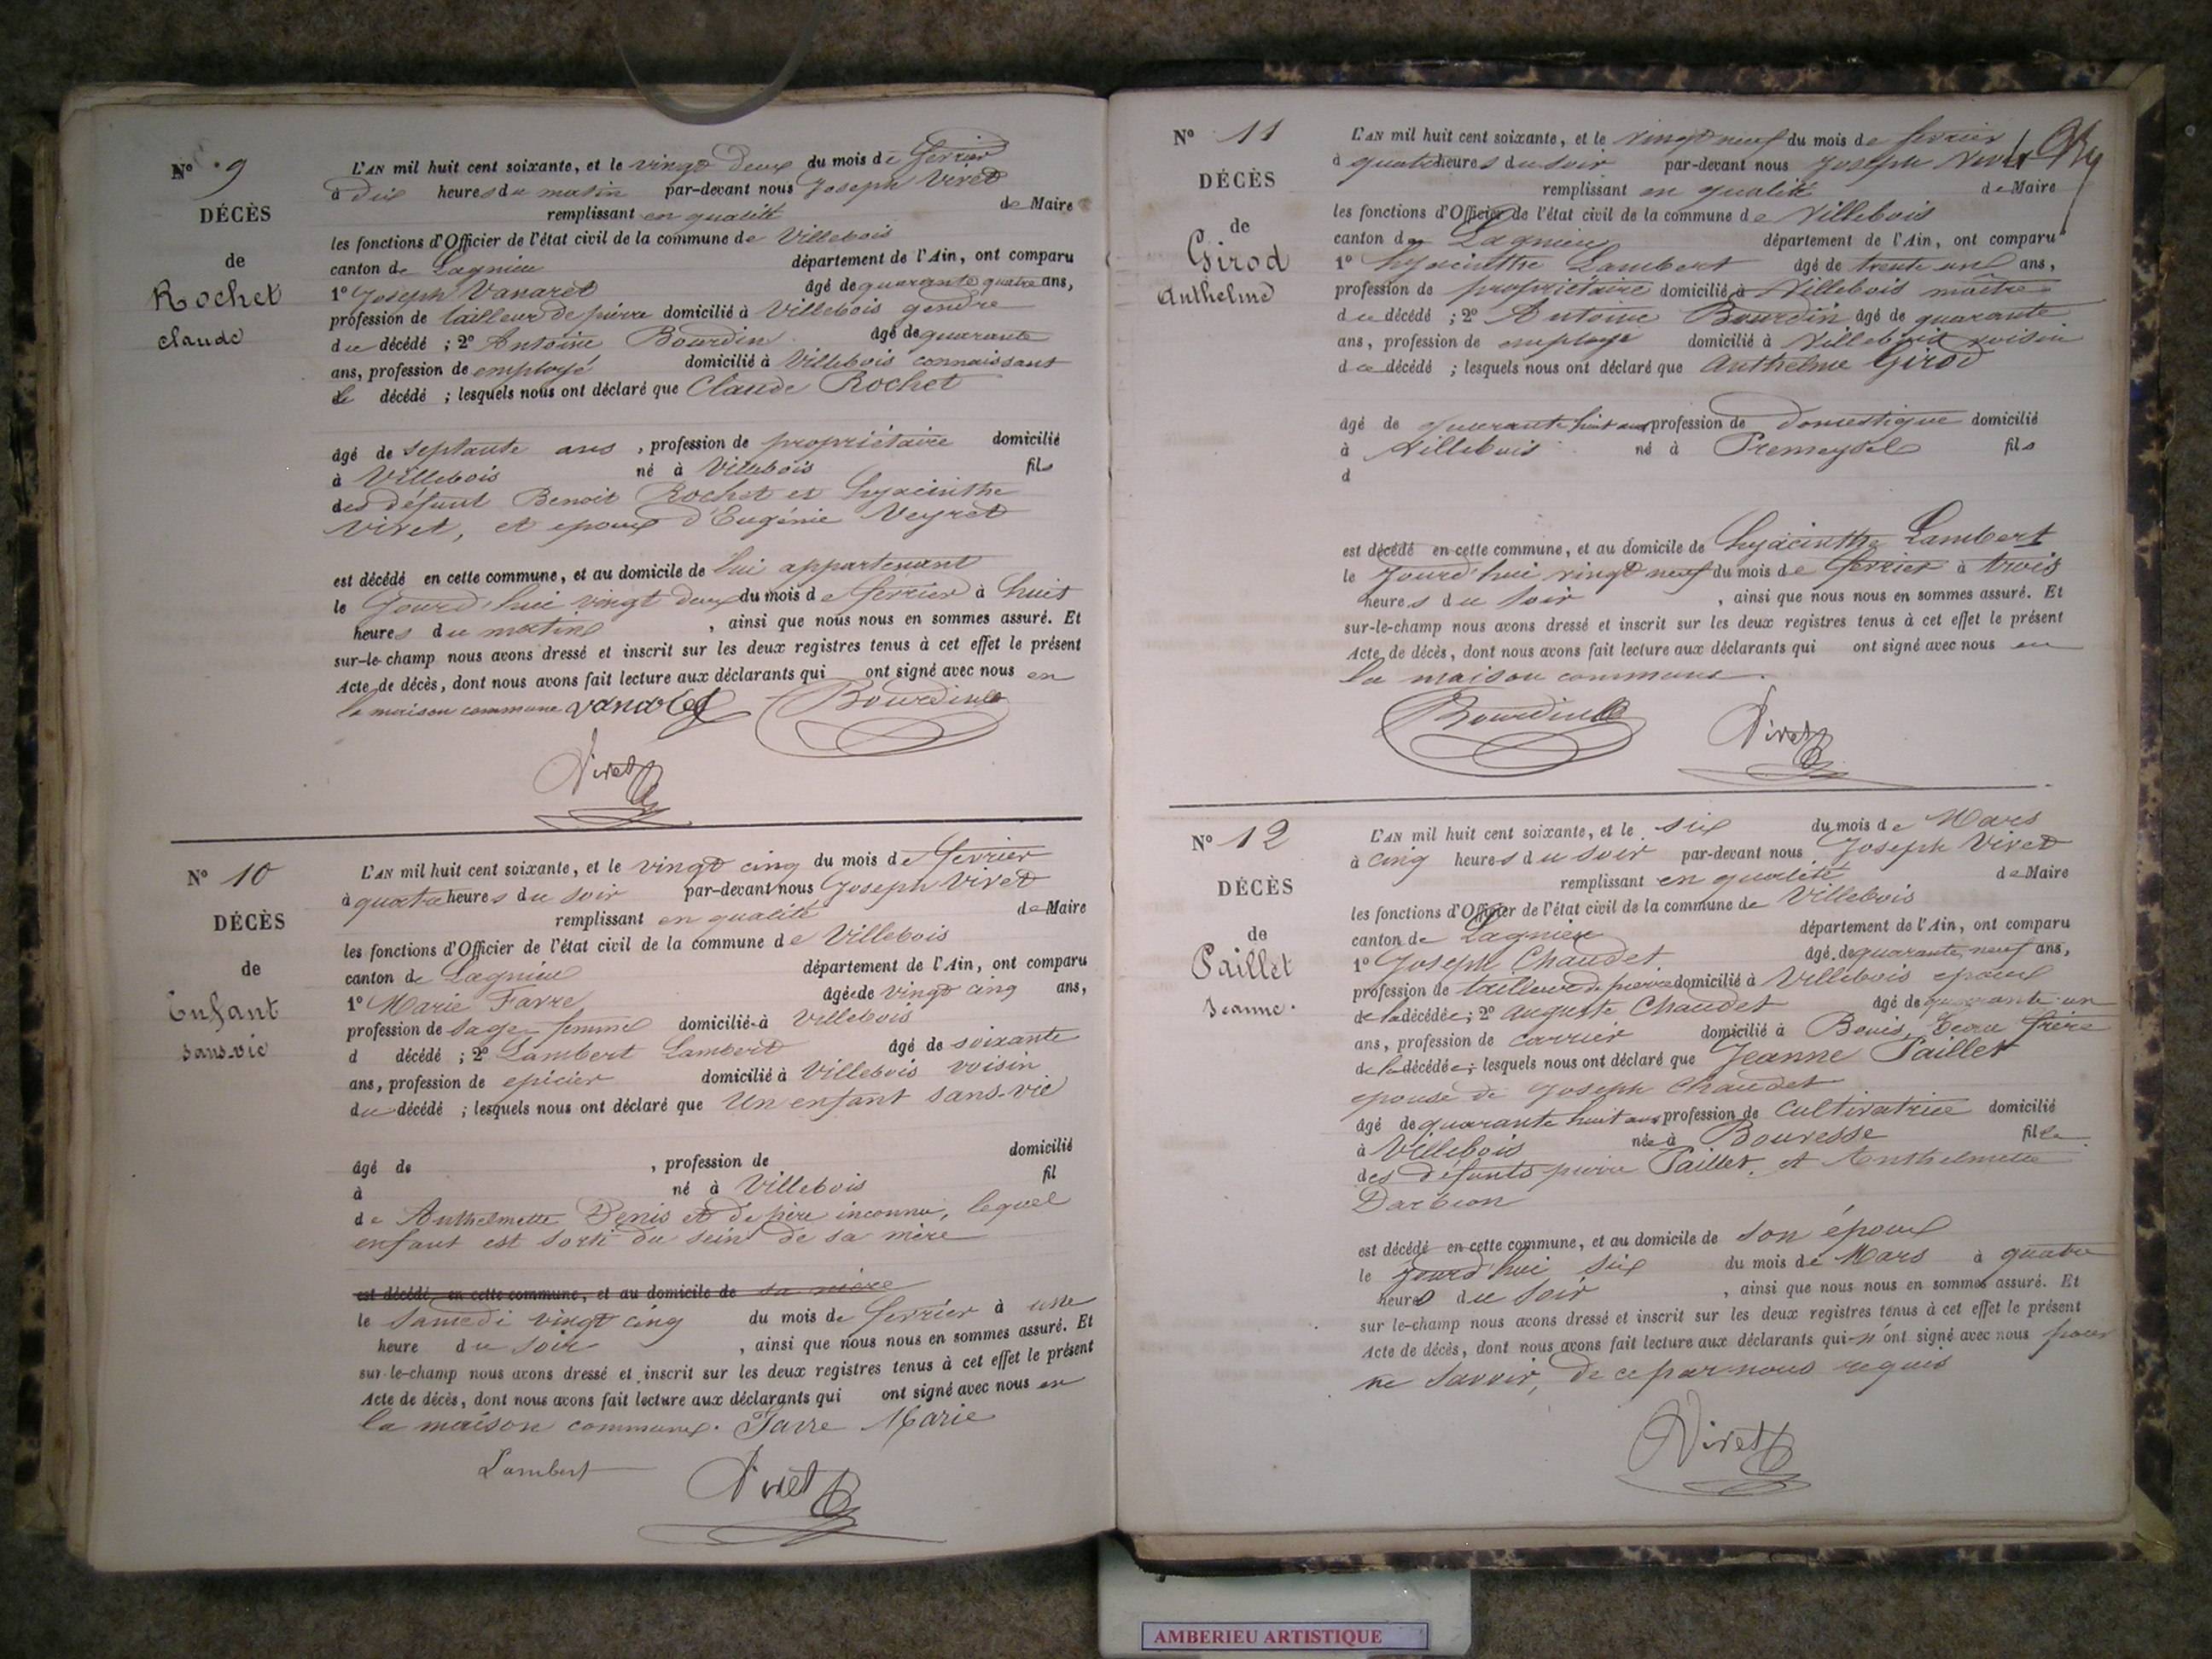 N° 9
DÉCÈS
de
Rochet
Claude
L'AN mil huit cent soixante, et le vingt deux du mois de février
à dix heures du matin par-devant nous Joseph Vivet
remplissant en qualité de Maire
les fonctions d'Officier de l'état civil de la commune de Villebois
canton de Lagnieu département de l'Ain, ont comparu
1° Joseph Vanaret âgé de quarante quatre ans,
profession de tailleur de pierre domicilié à Villebois gendre
du décédé ; 2° Antoine Bourdin âgé de quarante
ans, profession de employé domicilié à Villebois connaissant
le décédé ; lesquels nous ont déclaré que Claude Rochet
âgé de septante ans , profession de propriétaire domicilié
à Villebois né à Villebois fils
des défunt Benoit Rochet et hyacinthe
Vivet, et epoux d'Eugénie Veyret
est décédé en cette commune, et au domicile de lui appartenant
le Jourd'hui vingt deux du mois de février à huit
heures du matin , ainsi que nous nous en sommes assuré. Et
sur-le-champ nous avons dressé et inscrit sur les deux registres tenus à cet effet le présent
Acte de décès, dont nous avons fait lecture aux déclarants qui ont signé avec nous en
la maison commune Vanaret Bourdin
Vivet
N° 10
DÉCÈS
de
Enfant
sans-vie
L'AN mil huit cent soixante, et le vingt cinq du mois de février
à quatre heures du soir par-devant nous Joseph Vivet
remplissant en qualité de Maire
les fonctions d'Officier de l'état civil de la commune de Villebois
canton de Lagnieu département de l'Ain, ont comparu
1° Marie Favre âgée de vingt cinq ans,
profession de sage femme domicilié à Villebois
d décédé ; 2° Lambert Lambert âgé de soixante
ans, profession de epicier domicilié à Villebois voisin
du décédé ; lesquels nous ont déclaré que Un enfant sans-vie
âgé de , profession de domicilié
à né à Villebois fil
de Anthelmette Denis et de père inconnu, lequel
enfant est sorti du sein de sa mère
est décédé en cette commune, et au domicile de sa mère
le Samedi vingt cinq du mois de février à une
heure du soir , ainsi que nous nous en sommes assuré. Et
sur-le-champ nous avons dressé et inscrit sur les deux registres tenus à cet effet le présent
Acte de décès, dont nous avons fait lecture aux déclarants qui ont signé avec nous en
la maison commune. Favre Marie
Lambert Vivet
N° 11
DÉCÈS
de
Girod
Anthelme
L'AN mil huit cent soixante, et le vingt neuf du mois de février
à quatre heures du soir par-devant nous Joseph Vivet
remplissant en qualité de Maire
les fonctions d'Officier de l'état civil de la commune de Villebois
canton de Lagnieu département de l'Ain, ont comparu
1° hyacinthe Lambert âgé de trente un ans,
profession de propriétaire domicilié à Villebois maitre
du décédé ; 2° Antoine Bourdin âgé de quarante
ans, profession de employé domicilié à Villebois voisin
du décédé ; lesquels nous ont déclaré que Anthelme Girod
âgé de quarante huit ans profession de domestique domicilié
à Villebois né à Premeyzel fils
d
est décédé en cette commune, et au domicile de hyacinthe Lambert
le Jourd'hui vingt neuf du mois de février à trois
heures du soir , ainsi que nous nous en sommes assuré. Et
sur-le-champ nous avons dressé et inscrit sur les deux registres tenus à cet effet le présent
Acte de décès, dont nous avons fait lecture aux déclarants qui ont signé avec nous en
la maison commune.
Bourdin Vivet
N° 12
DÉCÈS
de
Paillet
Jeanne.
L'AN mil huit cent soixante, et le six du mois de Mars
à cinq heures du soir par-devant nous Joseph Vivet
remplissant en qualité de Maire
les fonctions d'Officier de l'état civil de la commune de Villebois
canton de Lagnieu département de l'Ain, ont comparu
1° Joseph Chaudet âgé de quarante neuf ans,
profession de tailleur de pierre domicilié à Villebois epoux
de la décédée ; 2° auguste Chaudet âgé de quarante un
ans, profession de carrier domicilié à Bouis, beau frère
de la décédée ; lesquels nous ont déclaré que Jeanne Paillet
epouse de Joseph Chaudet
âgé de quarante huit ans profession de Cultivatrice domicilié
à Villebois née à Bouvesse fille
des défunts pierre Paillet, et Anthelmette
Darbion
est décédé en cette commune, et au domicile de son époux
le Jourd'hui six du mois de Mars à quatre
heures du soir , ainsi que nous nous en sommes assuré. Et
sur le-champ nous avons dressé et inscrit sur les deux registres tenus à cet effet le présent
Acte de décès, dont nous avons fait lecture aux déclarants qui n'ont signé avec nous pour
ne savoir, de ce par nous requis
Vivet
AMBERIEU ARTISTIQUE